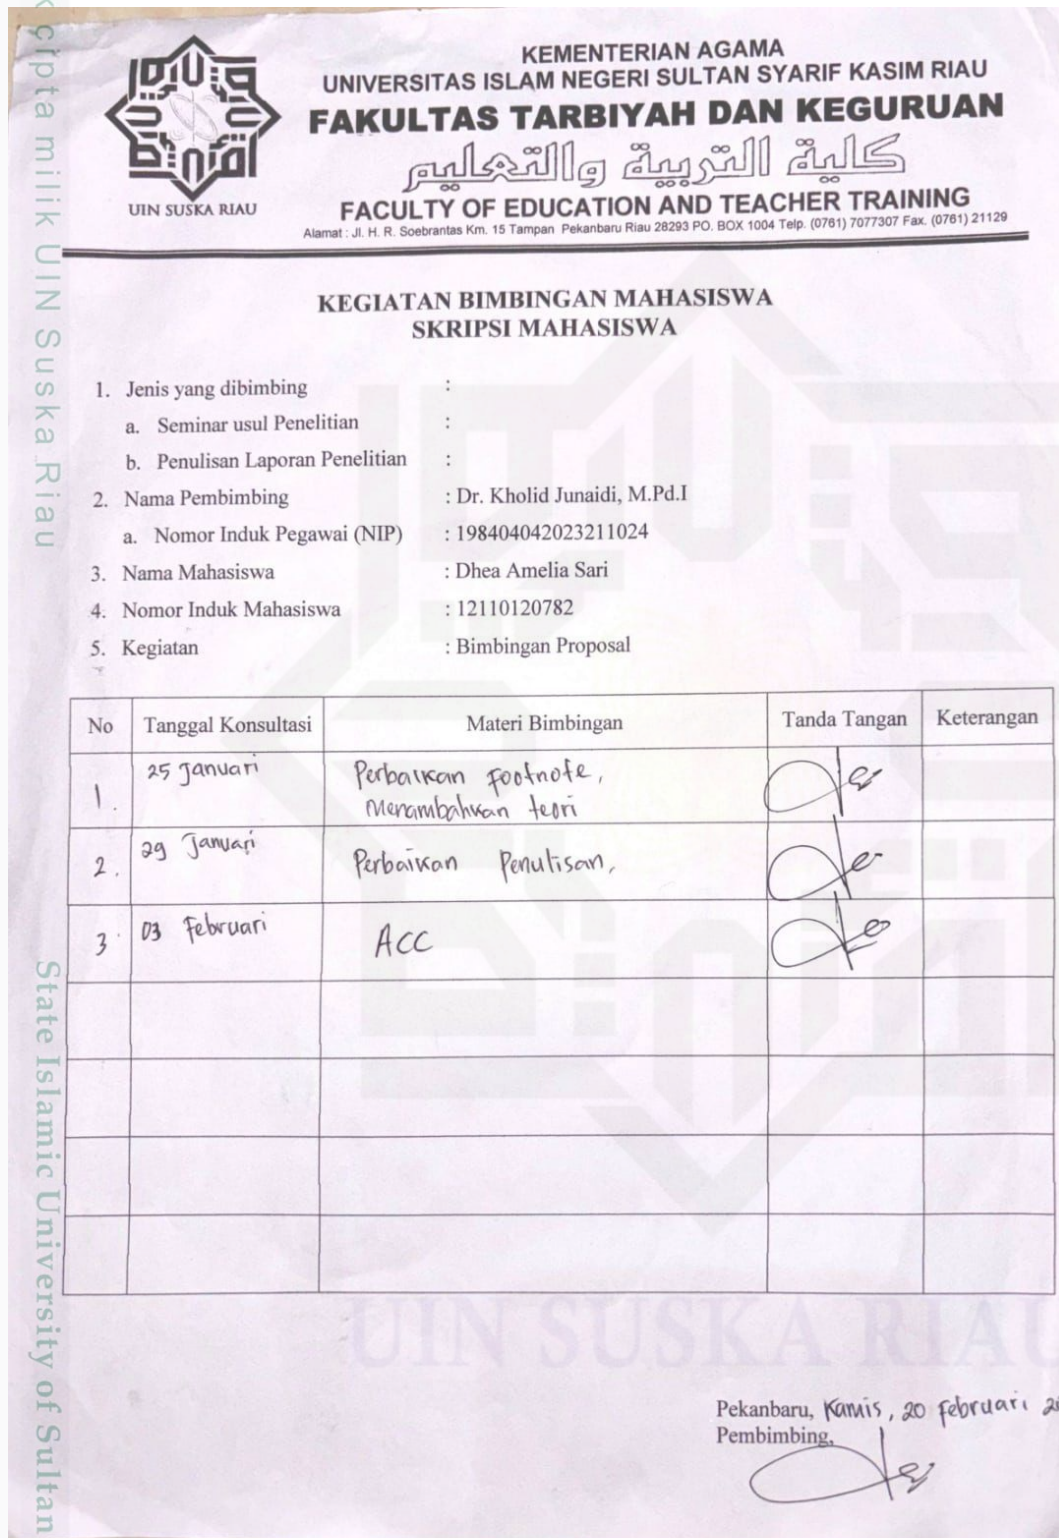 cipta milik UIN Suska Riau
State Islamic University of Sultan
UIN SUSKA RIAU
KEMENTERIAN AGAMA
UNIVERSITAS ISLAM NEGERI SULTAN SYARIF KASIM RIAU
FAKULTAS TARBIYAH DAN KEGURUAN
كلية التربية والتعليم
FACULTY OF EDUCATION AND TEACHER TRAINING
Alamat : Jl. H. R. Soebrantas Km. 15 Tampan Pekanbaru Riau 28293 PO. BOX 1004 Telp. (0761) 7077307 Fax. (0761) 21129
KEGIATAN BIMBINGAN MAHASISWA
SKRIPSI MAHASISWA
1. Jenis yang dibimbing :
a. Seminar usul Penelitian :
b. Penulisan Laporan Penelitian :
2. Nama Pembimbing : Dr. Kholid Junaidi, M.Pd.I
a. Nomor Induk Pegawai (NIP) : 198404042023211024
3. Nama Mahasiswa : Dhea Amelia Sari
4. Nomor Induk Mahasiswa : 12110120782
5. Kegiatan : Bimbingan Proposal
No Tanggal Konsultasi Materi Bimbingan Tanda Tangan Keterangan
1. 25 Januari Perbaikan Footnote,
Menambahkan teori
2. 29 Januari Perbaikan Penulisan,
3. 03 Februari ACC
UIN SUSKA RIAU
Pekanbaru, Kamis, 20 Februari
Pembimbing,